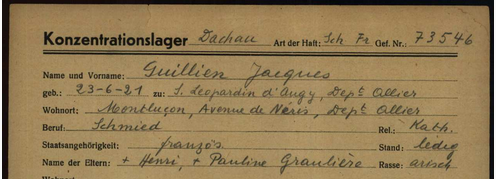 Konzentrationslager Dachau Art der Haft: Sch Fr. Gef. Nr.: 73546
Name und Vorname: Guillien Jacques
geb.: 23-6-21 zu: S. Leopardin d'Augy, Dept Allier
Wohnort: Montluçon, Avenue de Néris, Dept Allier
Beruf: Schmied Rel.: Kath.
Staatsangehörigkeit: französ. Stand: ledig
Name der Eltern: + Henri, + Pauline Graulière Rasse: arisch
Wohnort: